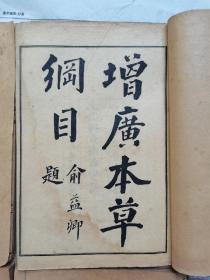 增廣本草
綱目
俞益卿
題